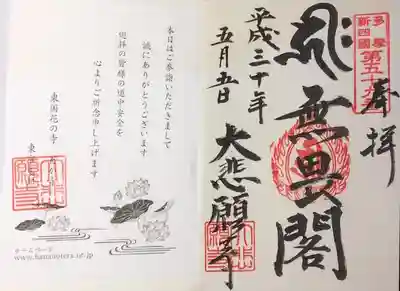 多摩
新四國
第五十九番
奉拝
無畏閣
平成三十年
五月五日
大悲願寺
本日はご参詣いただきまして
誠にありがとうございます
巡拝の皆様の道中安全を
心よりご祈念申し上げます
東国花の寺
ホームページ
www.hananotera.or.jp